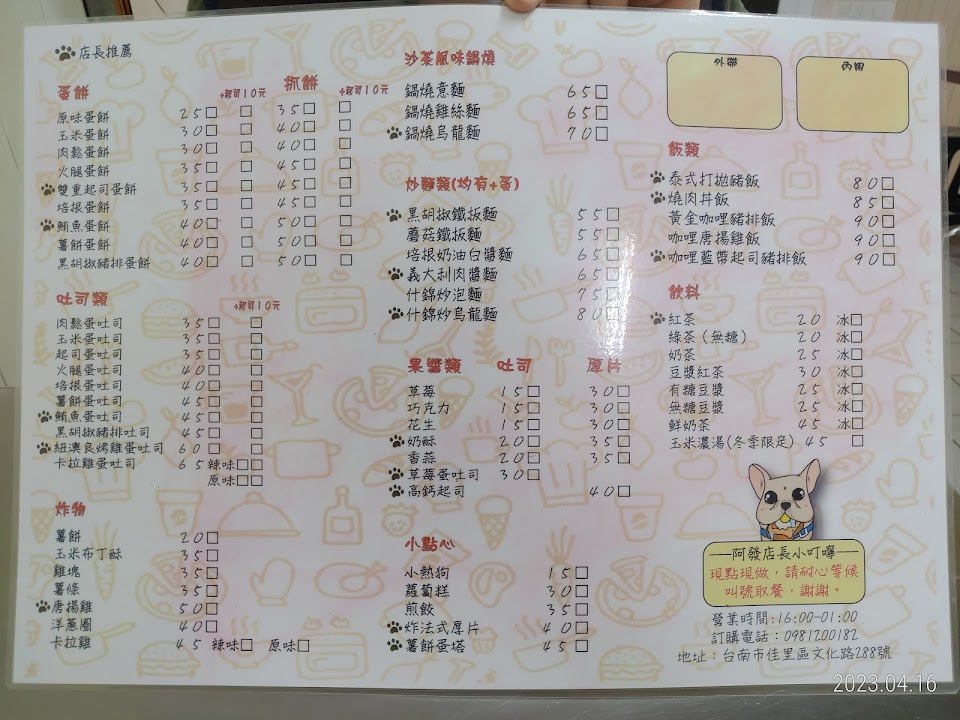 店長推薦
蛋餅 +起司10元 抓餅 +起司10元
原味蛋餅 25□ □ 35□ □
玉米蛋餅 30□ □ 40□ □
肉鬆蛋餅 30□ □ 40□ □
火腿蛋餅 35□ □ 45□ □
雙重起司蛋餅 35□ □ 45□ □
培根蛋餅 35□ □ 45□ □
鮪魚蛋餅 40□ □ 50□ □
薯餅蛋餅 40□ □ 50□ □
黑胡椒豬排蛋餅 40□ □ 50□ □
吐司類 +起司10元
肉鬆蛋吐司 35□ □
玉米蛋吐司 35□ □
起司蛋吐司 35□ □
火腿蛋吐司 40□ □
培根蛋吐司 40□ □
薯餅蛋吐司 45□ □
鮪魚蛋吐司 45□ □
黑胡椒豬排吐司 45□ □
紐澳良烤雞蛋吐司 60□ □
卡拉雞蛋吐司 65 辣味□□
原味□□
炸物
薯餅 20□
玉米布丁酥 35□
雞塊 35□
薯條 35□
唐揚雞 50□
洋蔥圈 40□
卡拉雞 45 辣味□ 原味□
沙茶風味鍋燒
鍋燒意麵 65□
鍋燒雞絲麵 65□
鍋燒烏龍麵 70□
炒麵類(均有+蛋)
黑胡椒鐵板麵 55□
蘑菇鐵板麵 55□
培根奶油白醬麵 65□
義大利肉醬麵 65□
什錦炒泡麵 75□
什錦炒烏龍麵 80□
果醬類 吐司 厚片
草莓 15□ 30□
巧克力 15□ 30□
花生 15□ 30□
奶酥 20□ 35□
香蒜 20□ 35□
草莓蛋吐司 30□
高鈣起司 40□
小點心
小熱狗 15□
蘿蔔糕 30□
煎餃 35□
炸法式厚片 40□
薯餅蛋塔 45□
外帶 內用
飯類
泰式打拋豬飯 80□
燒肉丼飯 85□
黃金咖哩豬排飯 90□
咖哩唐揚雞飯 90□
咖哩藍帶起司豬排飯 90□
飲料
紅茶 20 冰□
綠茶(無糖) 20 冰□
奶茶 25 冰□
豆漿紅茶 30 冰□
有糖豆漿 25 冰□
無糖豆漿 25 冰□
鮮奶茶 45 冰□
玉米濃湯(冬季限定) 45 □
阿發店長小叮嚀
現點現做,請耐心等候
叫號取餐,謝謝。
營業時間:16:00-01:00
訂購電話:0981200182
地址:台南市佳里區文化路288號
2023.04.16